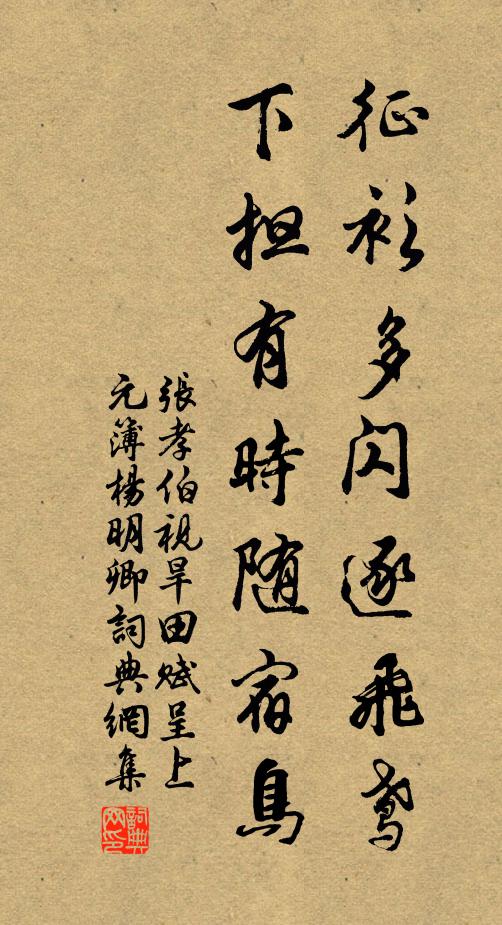 征衫多闪逐飛鸢
下担有時随宿鳥
張孝伯視旱田賦呈上
元簿楊明卿詞典網集
詞典网印